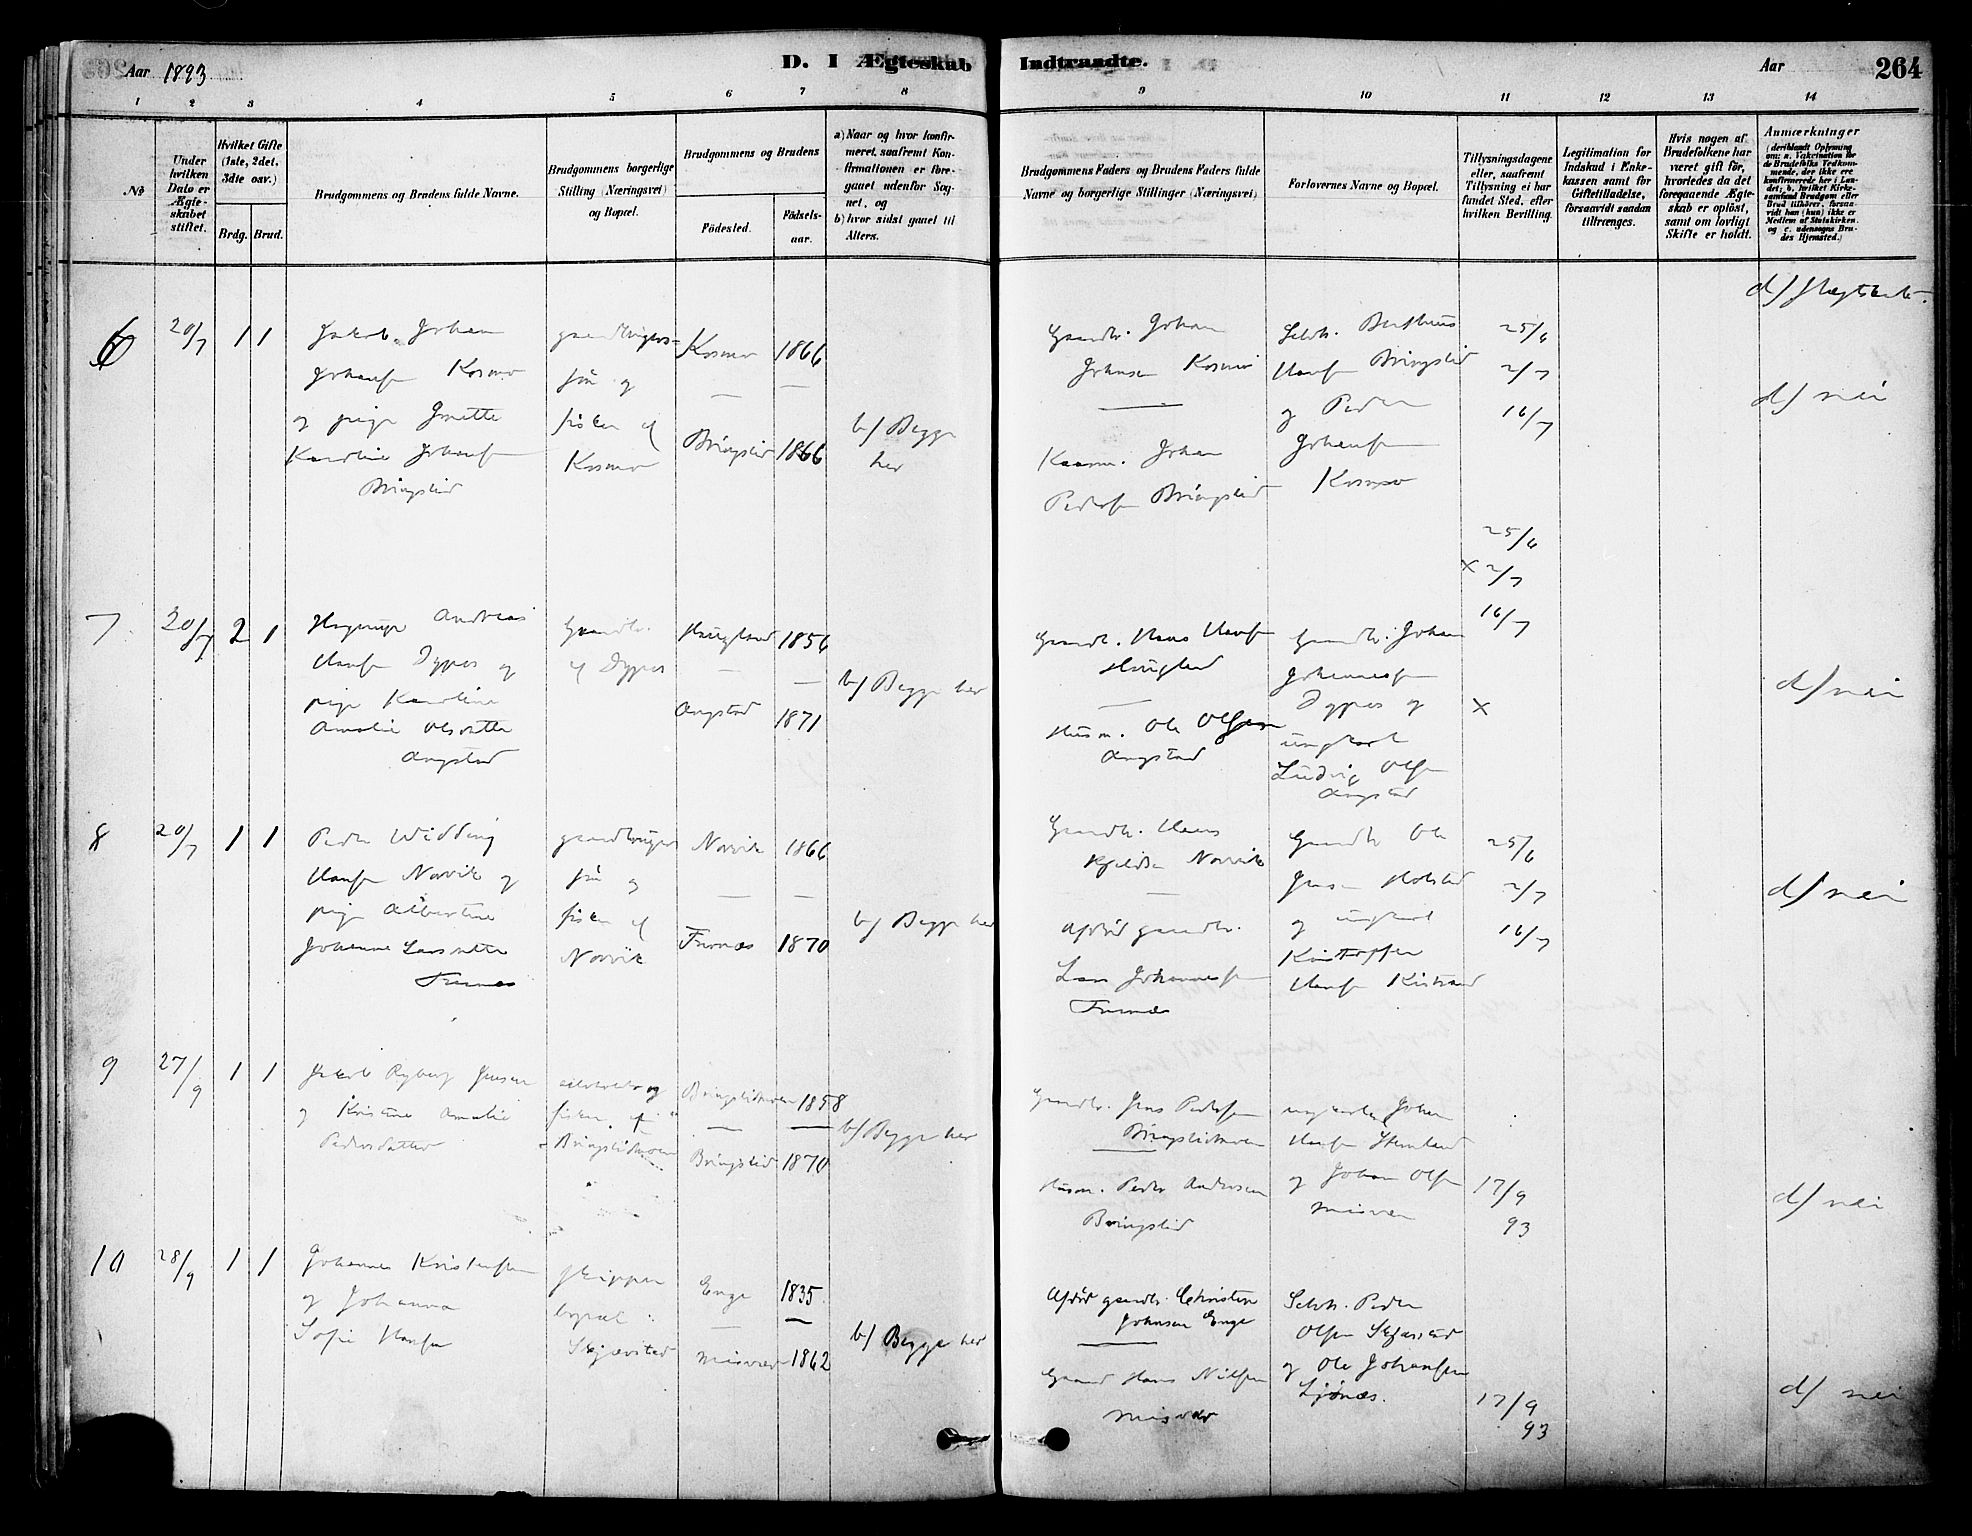 Aar 1893
D. I Ægteskab Indtraadte.
Aar
264
1 2 3 4 5 6 7 8 9 10 11 12 13 14
No
Under hvilken Dato er Ægteskabet stiftet.
Hvilket Gifte (1ste, 2det, 3dte osv.)
Brdg. Brud.
Brudgommens og Brudens fulde Navne.
Brudgommens borgerlige Stilling (Næringsvei) og Bopæl.
Brudgommens og Brudens
Fødested.
Fødselsaar.
a) Naar og hvor konfirmeret, saafremt Konfirmationen er foregaaet udenfor Sognet, og
b) hvor sidst gaaet til Alters.
Brudgommens Faders og Brudens Faders fulde Navne og borgerlige Stillinger (Næringsvei)
Forlovernes Navne og Bopæl.
Tillysningsdagene eller, saafremt Tillysning ei har fundet Sted, efter hvilken Bevilling.
Legitimation for Indskud i Enkekassen samt for Giftetilladelse, forsaavidt saadan tiltrænges.
Hvis nogen af Brudefolkene har været gift før, hvorledes da det foregaaende Ægteskab er opløst, samt om lovligt Skifte er holdt.
Anmærkninger
(deriblandt Oplysning om: a. Vakcination for de Brudefolks Vedkommende, der ikke ere konfirmerede her i Landet; b. hvilket Kirkesamfund Brudgom eller Brud tilhører, forsaavidt han (hun) ikke er Medlem af Statskirken, og c. udensogns Brudes Hjemsted.)
6
20/7
1 1
Jakob Johan
Johansen Kosmo
og pige Jonette
Karoline Johansen
Bringslid
gaardbrugers-
søn og
fisker af
Kosmo
Kosmo 1866
Bringslid 1866
b/ Begge
her
Gaardbr. Johan
Johansen Kosmo
Kaarm. Johan
Pedersen Bringslid
Selvh. Bertheus
Hansen Bringslid
og Peder
Johansen
Kosmo
25/6
2/7
16/7
d/ nei
7
20/7
2 1
Hagerup Andreas
Hansen Dypos og
pige Karoline
Amalie Olsdatter
Angstad
Gaardbr.
af Dypos
Haugland 1856
Angstad 1871
b/ Begge her
Gaardb. Hans Hansen
Haugland
Husm. Ole Olsen
Angstad
Gaardbr. Johan
Johannesen
Dypos og
ungkarl
Ludvig Olsen
Angstad
25/6
x 2/7
16/7
x
d/ nei
8
20/7
1 1
Peder Widding
Hansen Norvik og
pige Albertine
Johanne Larsdatter
Furnes
gaardbrugers
søn og
fisker af
Norvik
Norvik 1866
Furnes 1870
b/ Begge her
Gaardb. Hans
Kjeldsen Norvik
Afdød gaardbr.
Lars Johannesen
Furnæs
Gaardbr. Ole
Jensen Holstad
og ungkarl
Kristoffer
Hansen Kistrand
25/6
2/7
16/7
d/ nei
9
27/9
1 1
Jakob Ryberg Jensen
og Kristine Amalie
Pedersdatter
selvholder og
fisker af
Bringslidmoen
Bringslidmoen 1858
Bringslid 1870
b/ Begge her
Gaardbr. Jens Pedersen
Bringslidmoen
Husm. Peder Andersen
Bringslid
ungkarle Johan
Hansen Stemland
og Johan Olsen
Misvær
17/9
93
d/ nei
10
28/9
1 1
Johannes Kristensen
og Johanna
Sofie Hansen
skipper
bopæl:
Skjævstad
Enge 1835
Misvær 1862
b/ Begge her
Afdød gaardbr. Christen
Johnsen Enge
Gaard Hans Nilsen
Misvær
Selvh. Peder
Olsen Skjævstad
og Ole Johansen
Ljønes.
17/9
93
d/ nei